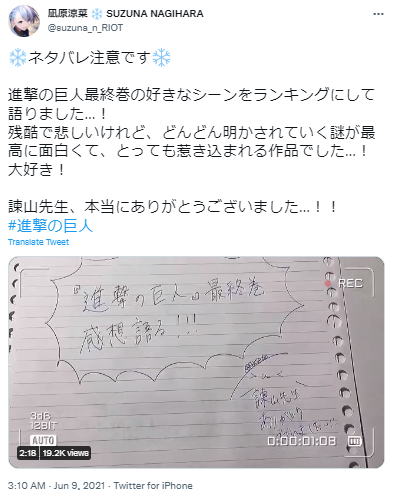 凪原涼菜 ❄ SUZUNA NAGIHARA
@suzuna_n_RIOT
❄ネタバレ注意です❄
進撃の巨人最終巻の好きなシーンをランキングにして
語りました...！
残酷で悲しいけれど、どんどん明かされていく謎が最
高に面白くて、とっても惹き込まれる作品でした...！
大好き！
諌山先生、本当にありがとうございました...！！
#進撃の巨人
Translate Tweet
REC
『進撃の巨人』最終巻
感想語る!!!
諌山先生
ありがとう
3dB
12BIT
AUTO
0:00:01:08
2:18 19.2K views
3:10 AM · Jun 9, 2021 · Twitter for iPhone